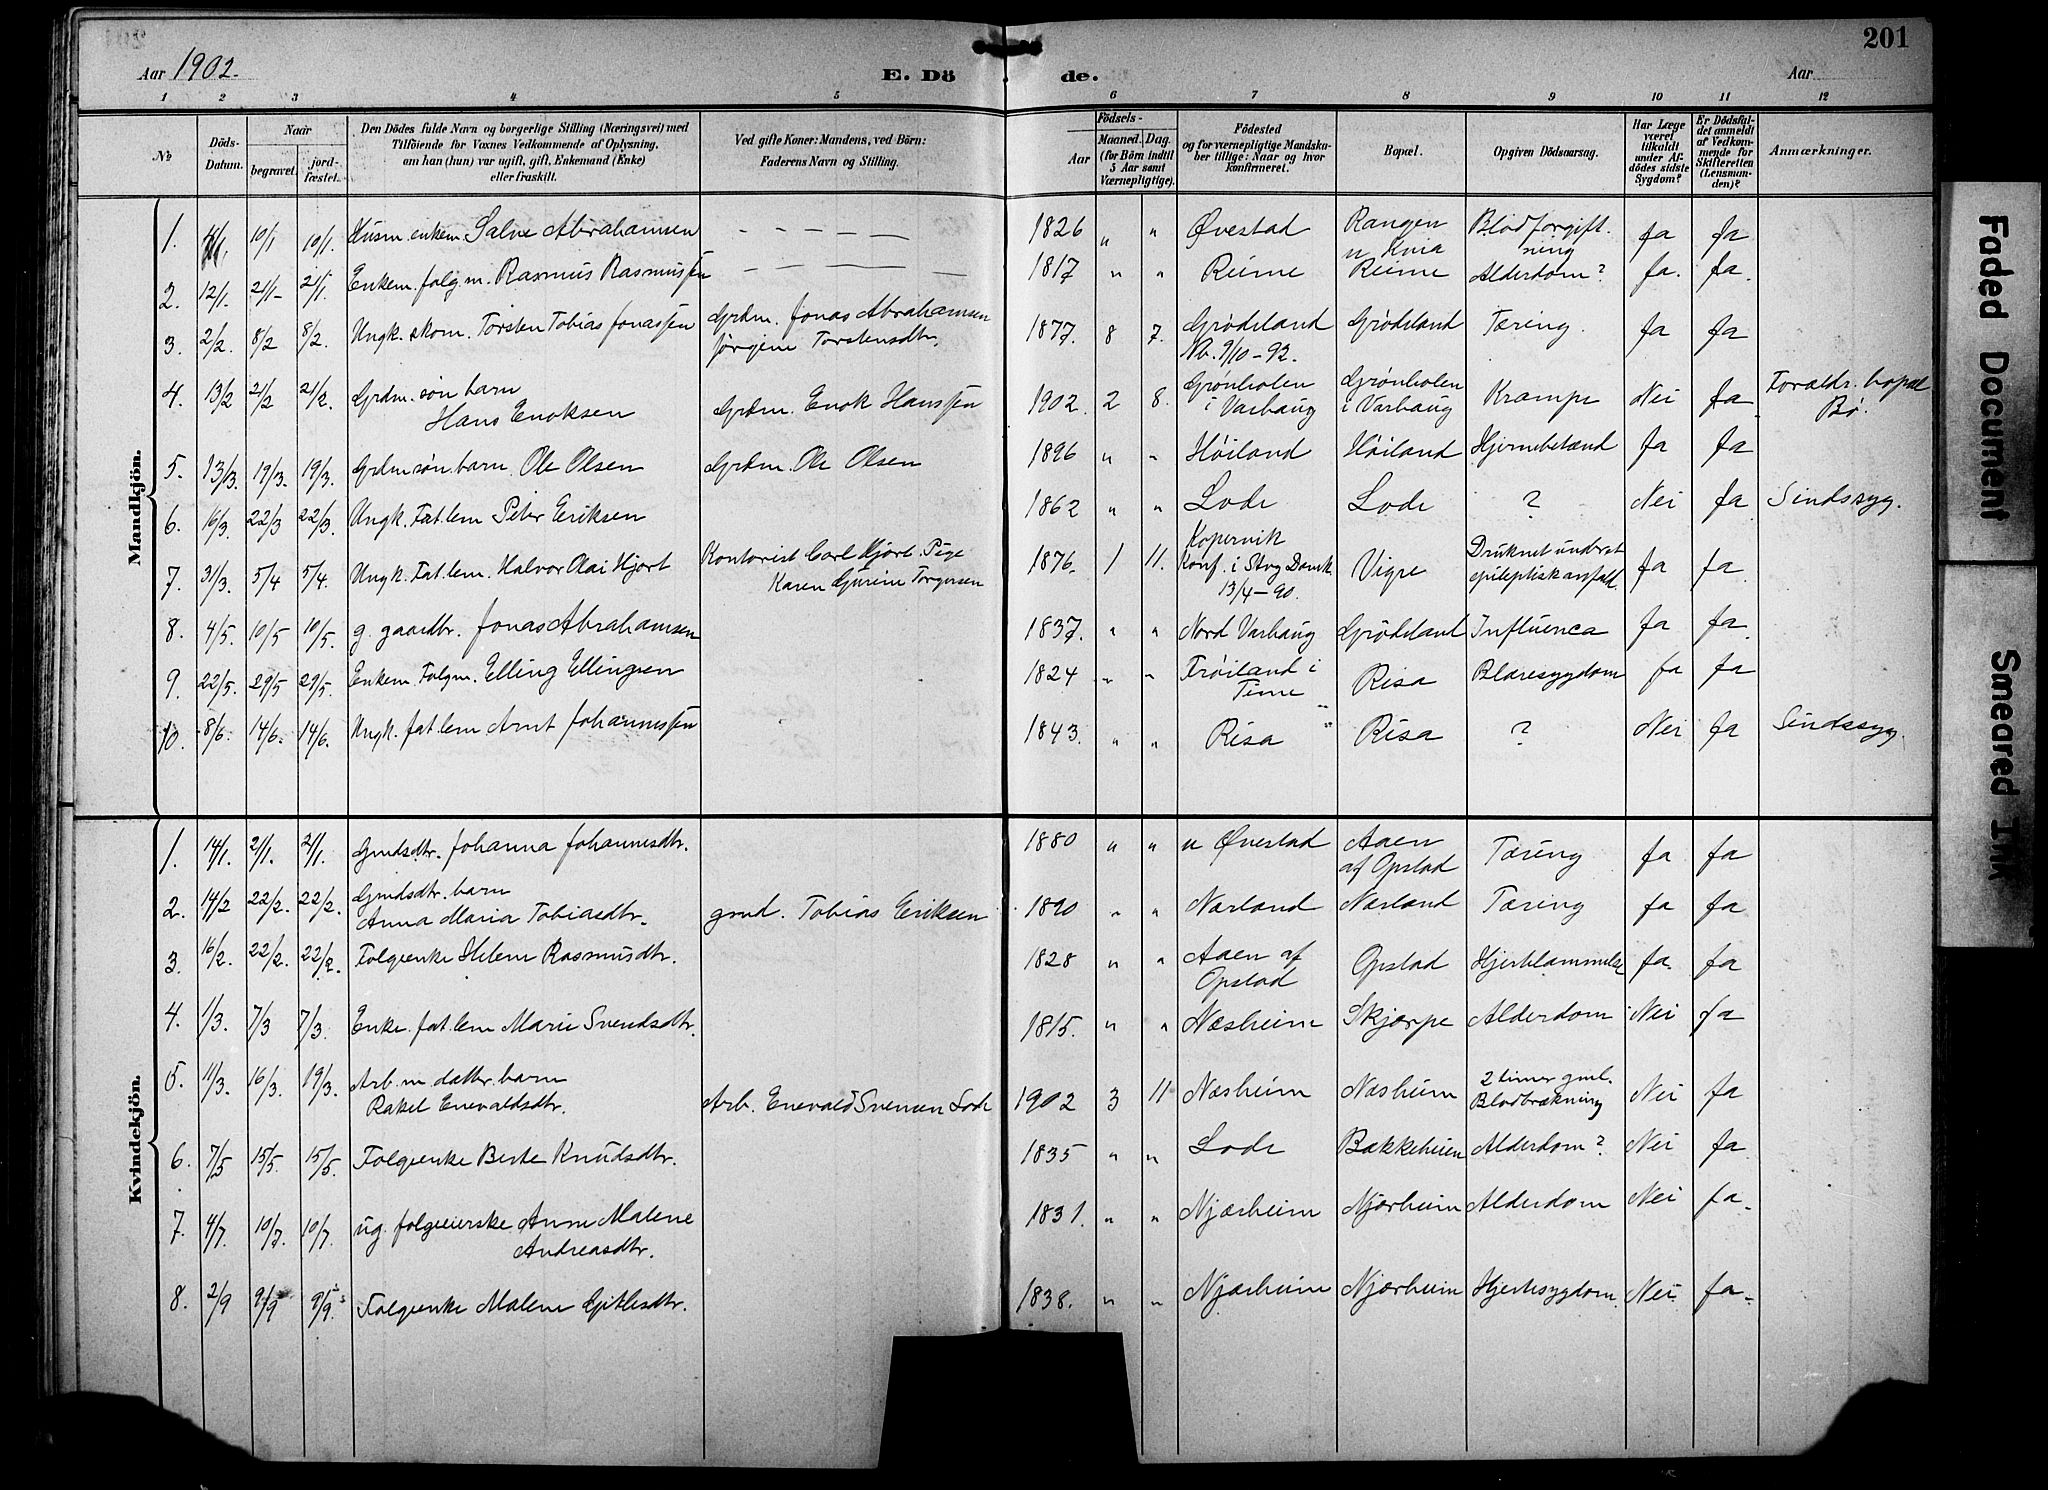 201
Aar 1902.
E. Dö de.
Aar
1 2 3 4 5 6 7 8 9 10 11 12
No
Döds-Datum.
Naar
begravet.
jord-fæstet.
Den Dödes fulde Navn og borgerlige Stilling (Næringsvei) med
Tilföiende for Voxnes Vedkommende af Oplysning,
om han (hun) var ugift, gift, Enkemand (Enke)
eller fraskilt.
Ved gifte Koner: Mandens, ved Börn:
Faderens Navn og Stilling.
Födsels-
Aar
Maaned. Dag.
(for Börn indtil
5 Aar samt
Værnepligtige).
Födested
og for værnepligtige Mandska-
ber tillige: Naar og hvor
konfirmeret.
Bopæl.
Opgiven Dödsaarsag.
Har Læge
været
tilkaldt
under Af-
dödes sidste
Sygdom?
Er Dödsfal-
det anmeldt
af Vedkom-
mende for
Skifteretten
(Lensman-
den)?
Anmærkninger.
Mandkjön.
1. 10/1 10/1. Husm. enkem. Salve Abrahamsen – – – – – 1826 " " Øvestad Rangen u Kvia Blodforgiftning ja ja
2. 12/1. 21/1 21/1. Enkem. folgm. Rasmus Rasmussen – – – – – 1817 " " Reime Reime Alderdom? ja. ja.
3. 2/2. 8/2 8/2. Ungk. skom. Torsten Tobias Jonassen Grdm. Jonas Abrahamsen Jørgine Torstensdtr. 1877. 8 7. Grødeland Nb. 9/10-92. Grødeland Tæring. ja ja
4. 13/2 21/2 21/2. Grdm. søn barn Hans Enoksen Grdm. Enok Hanssen 1902. 2 8. Grønholen i Varhaug Grønholen i Varhaug Krampe Nei ja Foraldr. bopæl Bø.
5. 13/3. 19/3. 19/3. Grdm søn. barn. Ole Olsen Grdm. Ole Olsen 1896 " " Høiland Høiland Hjernebetænd ja ja
6. 16/3. 22/3 22/3. Ungk. Fat. lem Peter Eriksen 1862 " " Lode Lode ? Nei ja Sindssyg.
7. 31/3. 5/4 5/4. Ungk. Fat. lem. Halvor Olai Hjort Kontorist Carl Hjort. Pige Karen Torgersen 1876. 1 11. Kopervik Konf. i Stvg Domk. 13/4-90. Vigre Druknet underet epileptisk anfald. ja ja.
8. 4/5. 10/5 10/5. g. gaardbr. Jonas Abrahamsen 1837. " " Nord Varhaug Grødeland Influenca ja ja.
9. 22/5. 29/5 29/5. Enkem. Folgm. Elling Ellingsen 1824 " " Frøiland i Time Risa Blæresygdom ja ja
10. 8/6. 14/6. 14/6. Ungk. fat. lem Arnt Johannessen 1843. " " Risa Risa ? Nei ja Sindssyg.
Kvindekjön.
1. 14/1. 21/1. 21/1. Gmdsdtr. Johanna Johannesdtr. 1880 " " u Øvestad Aaen af Opstad Tæring ja ja
2. 14/2 22/2. 22/2. Gmdsdtr. barn Anna Maria Tobiasdtr. gmd. Tobias Eriksen 1890 " " Nærland Nærland Tæring ja ja
3. 16/2. 22/2. 22/2. Folgeenke Helene Rasmusdtr. 1828 " " Aaen af Opstad Opstad Hjertelammelse ja. ja
4. 1/3. 7/3 7/3. Enke. fat. lem Marie Svendsdtr. 1815. " " Næsheim Skjærpe Alderdom Nei ja
5. 11/3. 16/3. 19/3. Arb. m. datter. barn Rakel Enevaldsdtr. Arb. Enevald Svensen Lode 1902 3 11 Næsheim Næsheim 2 timer gml. Blodbrækning Nei ja
6. 7/5 15/5. 15/5. Folgeenke Berte Knudsdtr. 1835 " " Lode Bækkeheien Alderdom? Nei ja
7. 4/7. 10/7. 10/7. ug. folgeeierske Anne Malene Andreasdtr. 1831. " " Njærheim Njærheim Alderdom Nei ja.
8. 2/9 9/9 9/9. Folgeenke Malene Gitlesdtr. 1838. " " Njærheim Njærheim Hjertesygdom. Nei ja.
Faded Document
Smeared Ink